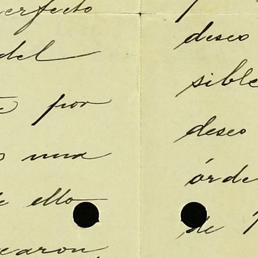 erfecto
del
por
una
ello
earon,
deseo
sible
deseo
órde
de